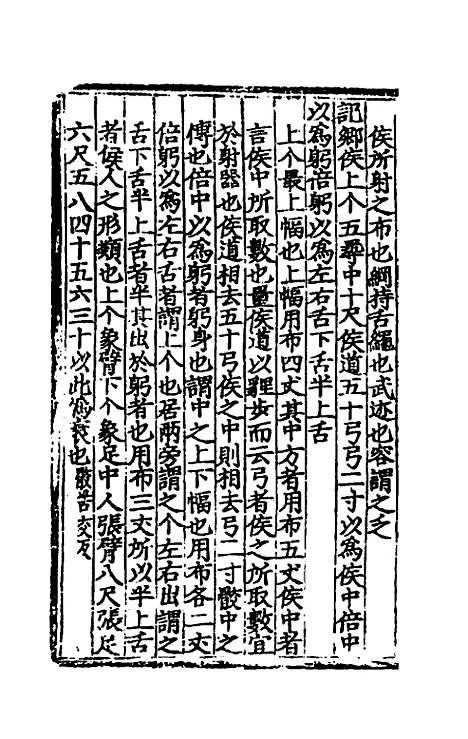 侯所射之布也綱持舌繩也武迹也容謂之乏
記鄉侯上个五尋中十尺侯道五十弓弓二寸以為侯中倍中
以為躬倍躬以為左右舌下舌半上舌
上个最上幅也上幅用布四丈其中方者用布五丈侯中者
言侯中所取數也量侯道以貍步而云弓者侯之所取數宜
於射器也侯道相去五十弓侯之中則相去弓二寸骹中之
博也倍中以為躬者躬身也謂中之上下幅也用布各二丈
倍躬以為左右舌者謂上个也居兩旁謂之个左右出謂之
舌下舌半上舌者半其出於躬者也用布三丈所以半上舌
者侯人之形類也上个象臂下个象足中人張臂八尺張足
六尺五八四十五六三十以此為衰也骹苦交反